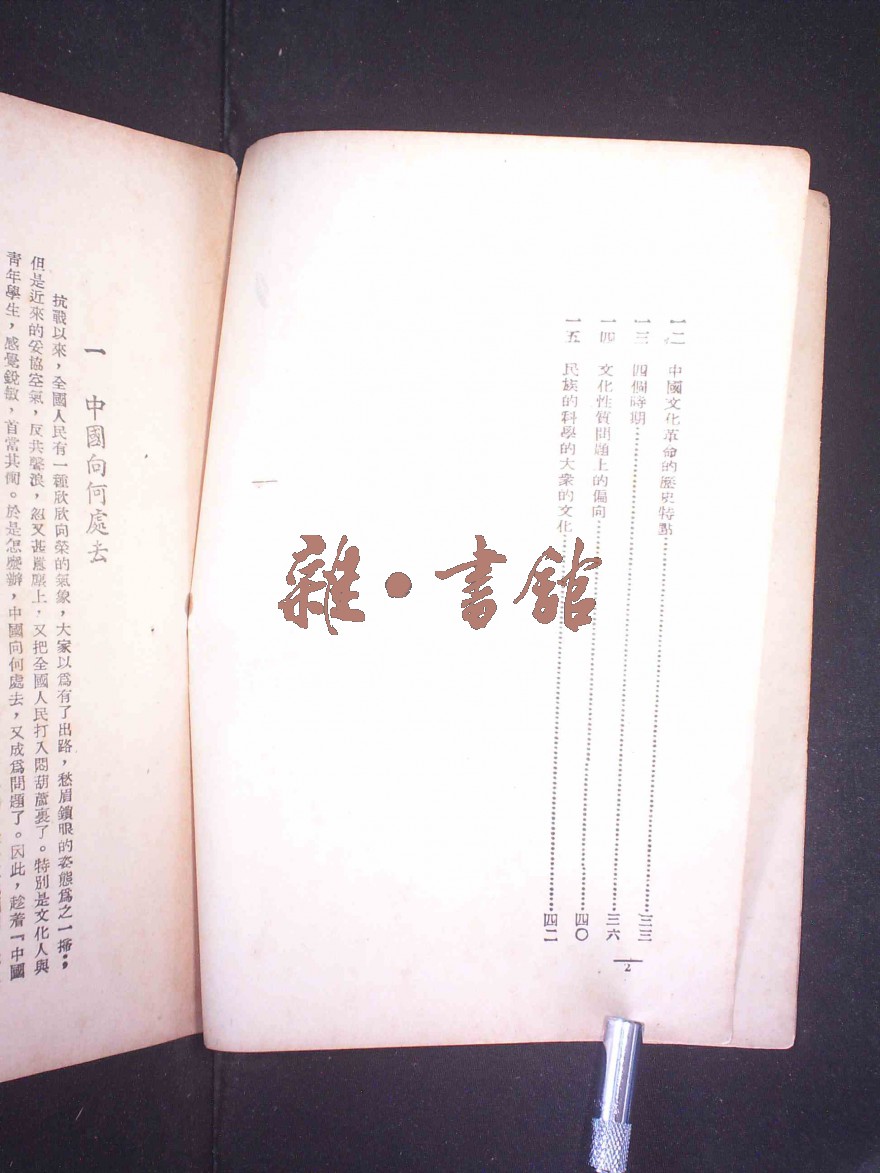 一二　中國文化革命的歷史特點……三三
一三　四個時期……三六
一四　文化性質問題上的偏向……四〇
一五　民族的科學的大衆的文化……四二
2
雜•書館
一　中國向何處去
抗戰以來，全國人民有一種欣欣向榮的氣象，大家以爲有了出路，愁眉鎖眼的姿態爲之一掃；
但是近來的妥協空氣，反共聲浪，忽又甚囂塵上，又把全國人民打入悶葫蘆裏了。特別是文化人與
青年學生，感覺銳敏，首當其衝。於是怎麼辦，中國向何處去，又成爲問題了。因此，趁着『中國